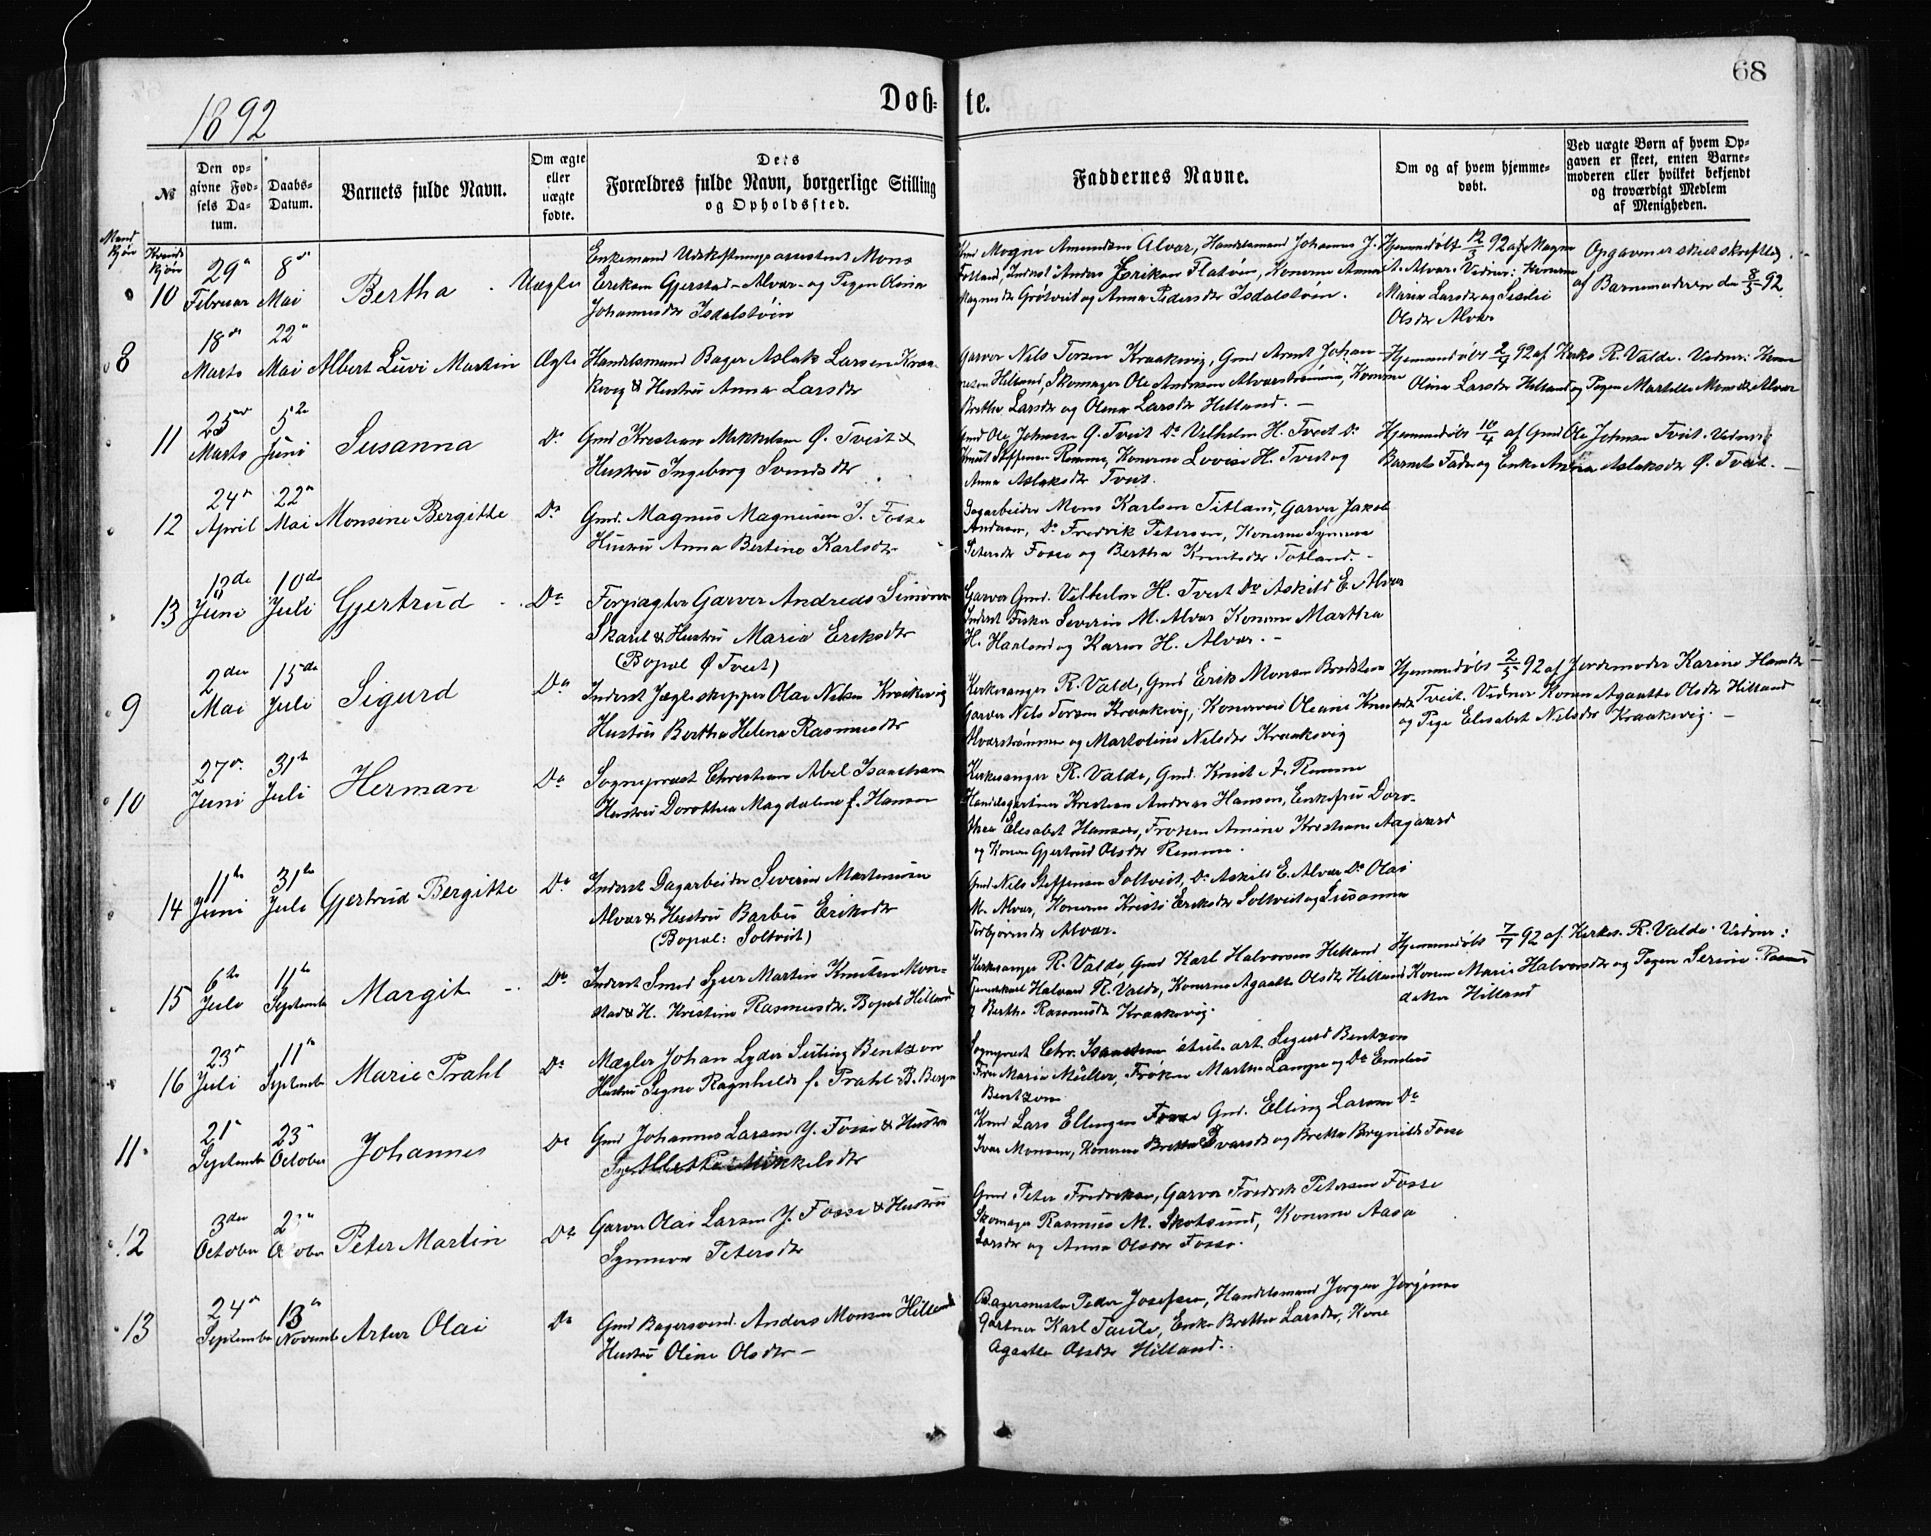 68
1892
Døb= te.
№
Den op-
givne Fød-
sels Da-
tum.
Daabs-
Datum.
Barnets fulde Navn.
Om ægte
eller
uægte
fødte.
Dets
Forældres fulde Navn, borgerlige Stilling
og Opholdssted.
Faddernes Navne.
Om og af hvem hjemme-
døbt.
Ved uægte Børn af hvem Op-
gaven er skeet, enten Barne-
moderen eller hvilket bekjendt
og troværdigt Medlem
af Menigheden.
Mand
kjøn
Kvinde
kjøn
10
29 Februar
8 Mai
Bertha
Uægte
Enkemand Udskiftningsassistent Mons
Eriksen Gjerstad - Alvær - og Pigen Olina
Johannesdtr Isdalstøen
Gmd Mogne Amundsen Alvær, Handelsmand Johannes J.
Anders Eriksen Flatøen, Konerne Anna
Magnesdtr Grøtveit og Anna Pedersdtr Isdalstøen.
Hjemmedøbt 12/3 92 af Magne
A. Alvær. Vidner: Konerne
Maria Larsdtr og
Olsdtr Alvær
Opgaven er skeet skriftlig
af Barnemoderen den 8/5 92.
8
18 Marts
22 Mai
Albert Luvi Martin
Ægte
Handelsmand Bager Aslak Larsen Kraa-
kevig & Hustru Anna Larsdtr
Garver Nils Torsen Kraakevig, Gmd Arent Johan-
nesen Hilland, Skomager Ole Andersen Alverstrømmen, Konerne
Brethe Larsdtr og Olina Larsdtr Hilland. -
Hjemmedøbt 2/4 92 af Kirkes. R. Valde. Vidner: Konen
Olina Larsdtr Hilland og Pigen Martella Monsdtr Alvær
11
25 Marts
5te Juni
Susanna
Do
Gmd Kristian Mikkelsen Ø. Tveit &
Hustru Ingeborg Svendsdtr
Gmd Ole Johnsen Ø. Tveit Do Vilhelm H. Tveit Do
Knut Steffensen Remme, Konerne Lovise H. Tveit og
Anna Aslaksdtr Tveit.
Hjemmedøbt 10/4 af Gmd Ole Johnsen Tveit. Vidner
Barnets Fader og Enke Anna Aslaksdtr Ø. Tveit. -
12
24 April
22 Mai
Monsine Bergitte
Do
Gmd. Magnus Magnusen Y. Fosse
Hustru Anna Bertine Karlsdtr
Dagarbeider Mons Karlsen Titland, Garver Jakob
Andersen, Do Fredrik Petersen, Konerne Synneva
Petersdtr Fosse og Bertha Knutsdtr Totland. -
13
Juni
10de Juli
Gjertrud
Do
Forpagter Garver Andreas Simonsen
Skaret & Hustru Maria Eriksdtr
(Bopæl Ø Tveit)
Garver Gmd. Vilhelm H. Tveit Do Askild E. Alvær
Inderst Fisker Severin M. Alvær Konerne Martha
H. Harland og Karen H. Alvær. -
9
2den Mai
15de Juli
Sigurd
Do
Inderst Jægteskipper Olai Nilsen Kraakevig
Hustru Bertha Helena Rasmusdtr
Kirkesanger R. Valde, Gmd Erik Monsen Bredsteen
Garver Nils Torsen Kraakevig, Konerne Oleane Knutsdtr
Alverstrømmen og Martoline Nilsdtr Kraakevig
Hjemmedøbt 2/5 92 af Jordemoder Karine Hansdtr
Tveit. Vidner Konen Agaatte Olsdtr Hilland
og Pige Elisabet Nilsdtr Kraakevig. -
10
27 Juni
31te Juli
Herman
Do
Sognepræst Christian Abel Isachsen
Hustru Dorothea Magdalene f. Hansen
Kirkesanger R. Valde, Gmd. Knut A. Remme
Handelsgartner Kristian Andreas Hansen, Enkefru Doro-
thea Elisabet Hansen, Frøken Amine Kristiane Aagaard
og Konen Gjertrud Olsdtr Remme.
14
11te Juni
31te Juli
Gjertrud Bergitte
Do
Inderst Dagarbeider Severin Martinusen
Alvær & Hustru Barbro Eriksdtr
(Bopæl: Soltveit)
Gmd Nils Steffensen Soltveit, Do Askild E. Alvær Do Olai
M. Alvær, Konerne Kristi Eriksdtr Soltveit og Susanna
Torbjørnsdtr Alvær.
15
6te Juli
11te September
Margit
Do
Inderst Smed Sjur Martin Knutsen Mor-
stad & H. Kristine Rasmusdtr. Bopæl Hilland
Kirkesanger R. Valde, Gmd Karl Halvorsen Hilland
Halvard R. Valde, Konerne Agaatte Olsdtr Hilland
& Bertha Rasmusdtr Kraakevig.
Hjemmedøbt 7/7 92 af Kirkes. R. Valde. Vidner:
Konen Marie Halvorsdtr og Pigen Serine Rasmus
datter Hilland
16
23 Juli
11 September
Marie Prahl
Do
Mægler Johan Lyder Suling Bentzon
Hustru Signe Ragnhild f. Prahl B. Bergen
Sognepræst Chr. Isachsen stud. art. Sigurd Bentzon
Fru Maria Müller, Frøken Martha Lampe og Do
Bentzon
11
21 September
23 October
Johannes
Do
Gmd Johannes Larsen Y. Fosse & Hustru
Mikkelsdtr
Gmd Lars Ellingsen Fosse Gmd. Elling Larsen Do
Ivar Monsen, Konerne Brethe Ivarsdtr og Brethe Brynilds Fosse
12
3den October
October
Peter Martin
Do
Garver Olai Larsen Y. Fosse & Hustru
Synneva Petersdtr
Gmd Peter Fredriksen, Garver Fredrik Petersen Fosse
Skomager Rasmus M. Skotsund, Konerne Aasa
Larsdtr og Anna Olsdtr Fosse.
13
24 September
13 November
Artur Olai
Do
Gmd Bagersvend. Anders Monsen Hilland
Hustru Oline Olsdtr -
Bagermester Peder Josefsen, Handelsmand Jørgen Jørgensen
Gartner Karl Taule, Enke Brethe Larsdtr, Kone
Agaatte Olsdtr Hilland.